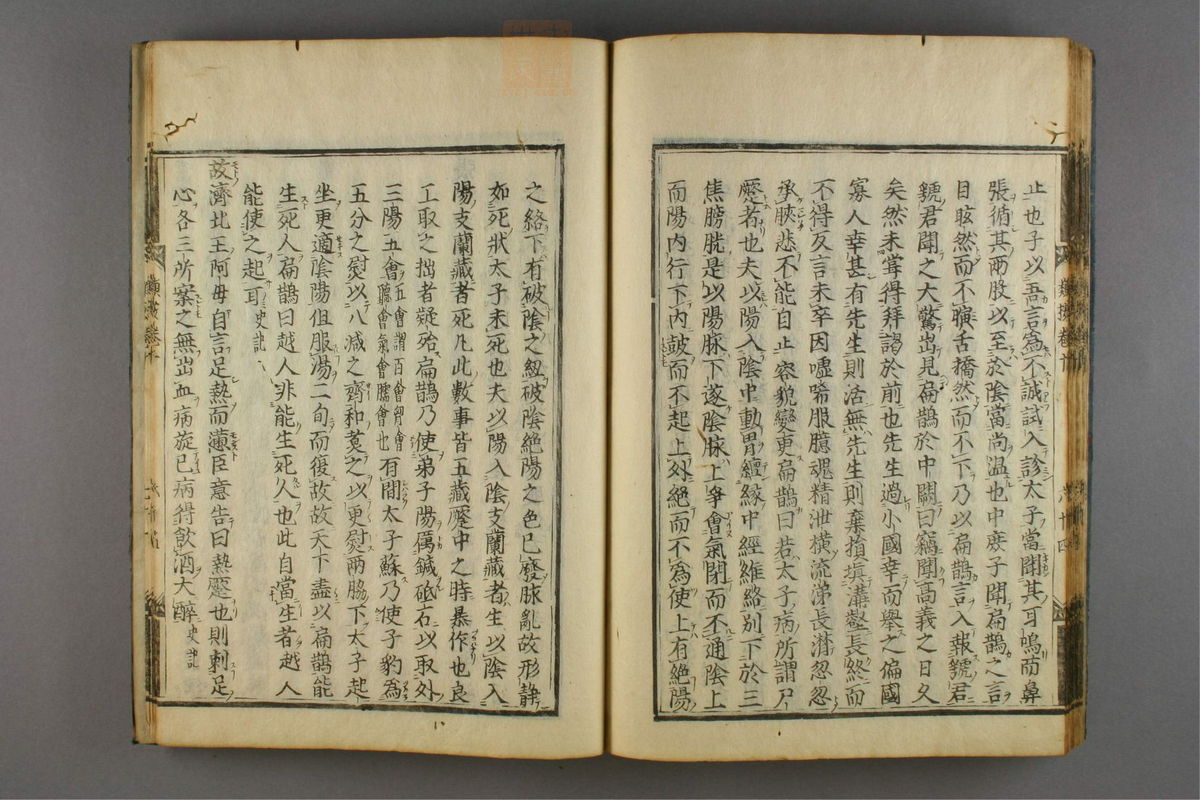 止也子以吾言為不誠試入診太子當聞其耳鳴而鼻
張循其兩股以至於陰當尚温也中庶子聞扁鵲之言
目眩然而不瞚舌撟然而不下乃以扁鵲言入報虢君
虢君聞之大驚出見扁鵲於中闕曰竊聞高義之日久
矣然未甞得拜謁於前也先生過小國幸而舉之偏國
寡人幸甚有先生則活無先生則棄捐填溝壑長終而
不得反言未卒因噓唏服臆魂精泄橫流涕長潸忽忽
承䀹悲不能自止容貌變更扁鵲曰若太子病所謂尸
蹷者也夫以陽入陰中動胃繵緣中經維絡別下於三
焦膀胱是以陽脉下遂陰脉上爭會氣閉而不通陰上
而陽内行下内皷而不起上外絕而不為使上有絕陽
之絡下有破陰之紐破陰絕陽之色已廢脉亂故形静
如死狀太子未死也夫以陽入陰支蘭藏者生以陰入
陽支蘭藏者死凡此數事皆五藏蹷中之時暴作也良
工取之拙者疑殆扁鵲乃使弟子陽厲鍼砥石以取外
三陽五會五會謂百會胷會聽會氣會臑會也有間太子蘇乃使子豹為
五分之熨以八減之齊和煑之以更熨兩脇下太子起
坐更適陰陽但服湯二旬而復故故天下盡以扁鵲能
生死人扁鵲曰越人非能生死人也此自當生者越人
能使之起耳史記
故濟北王阿母自言足熱而懣臣意告曰熱蹷也則刺足
心各三所案之無出血病旋已病得飲酒大醉史記